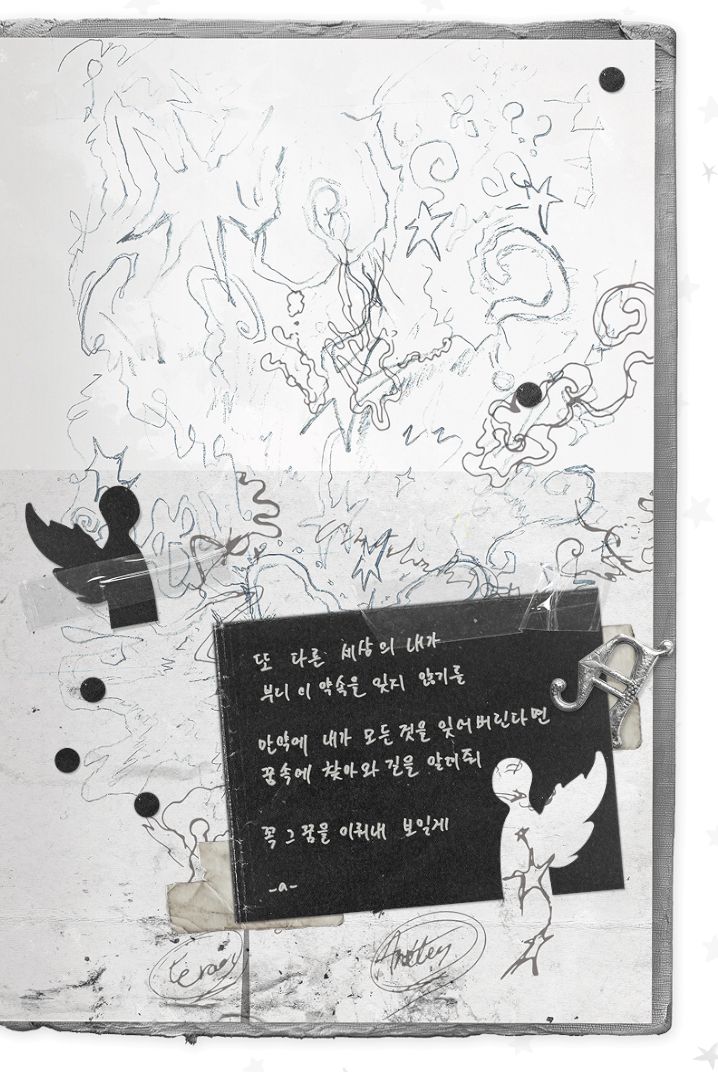 또 다른 세상의 내가
부디 이 약속을 잊지 않기를
만약에 내가 모든 것을 잊어버린다면
꿈속에 찾아와 길을 알려줘
꼭 그 꿈을 이뤄내 보일게
-a-
A